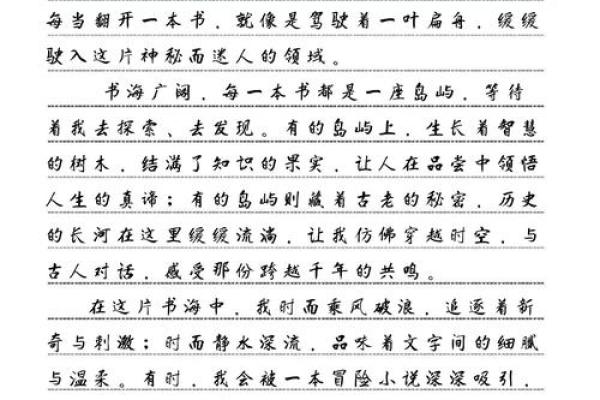 每当翻开一本书，就像是驾驶着一叶扁舟，缓缓
驶入这片神秘而迷人的领域。
书海广阔，每一本书都是一座岛屿，等待
着我去探索、去发现。有的岛屿上，生长着智慧
的树木，结满了知识的果实，让人在品尝中领悟
人生的真谛；有的岛屿则藏着古老的秘密，历史
的长河在这里缓缓流淌，让我仿佛穿越时空，与
古人对话，感受那份跨越千年的共鸣。
在这片书海中，我时而乘风破浪，追逐着新
奇与刺激；时而静水深流，品味着文字间的细腻
与温柔。有时，我会被一本冒险小说深深吸引，